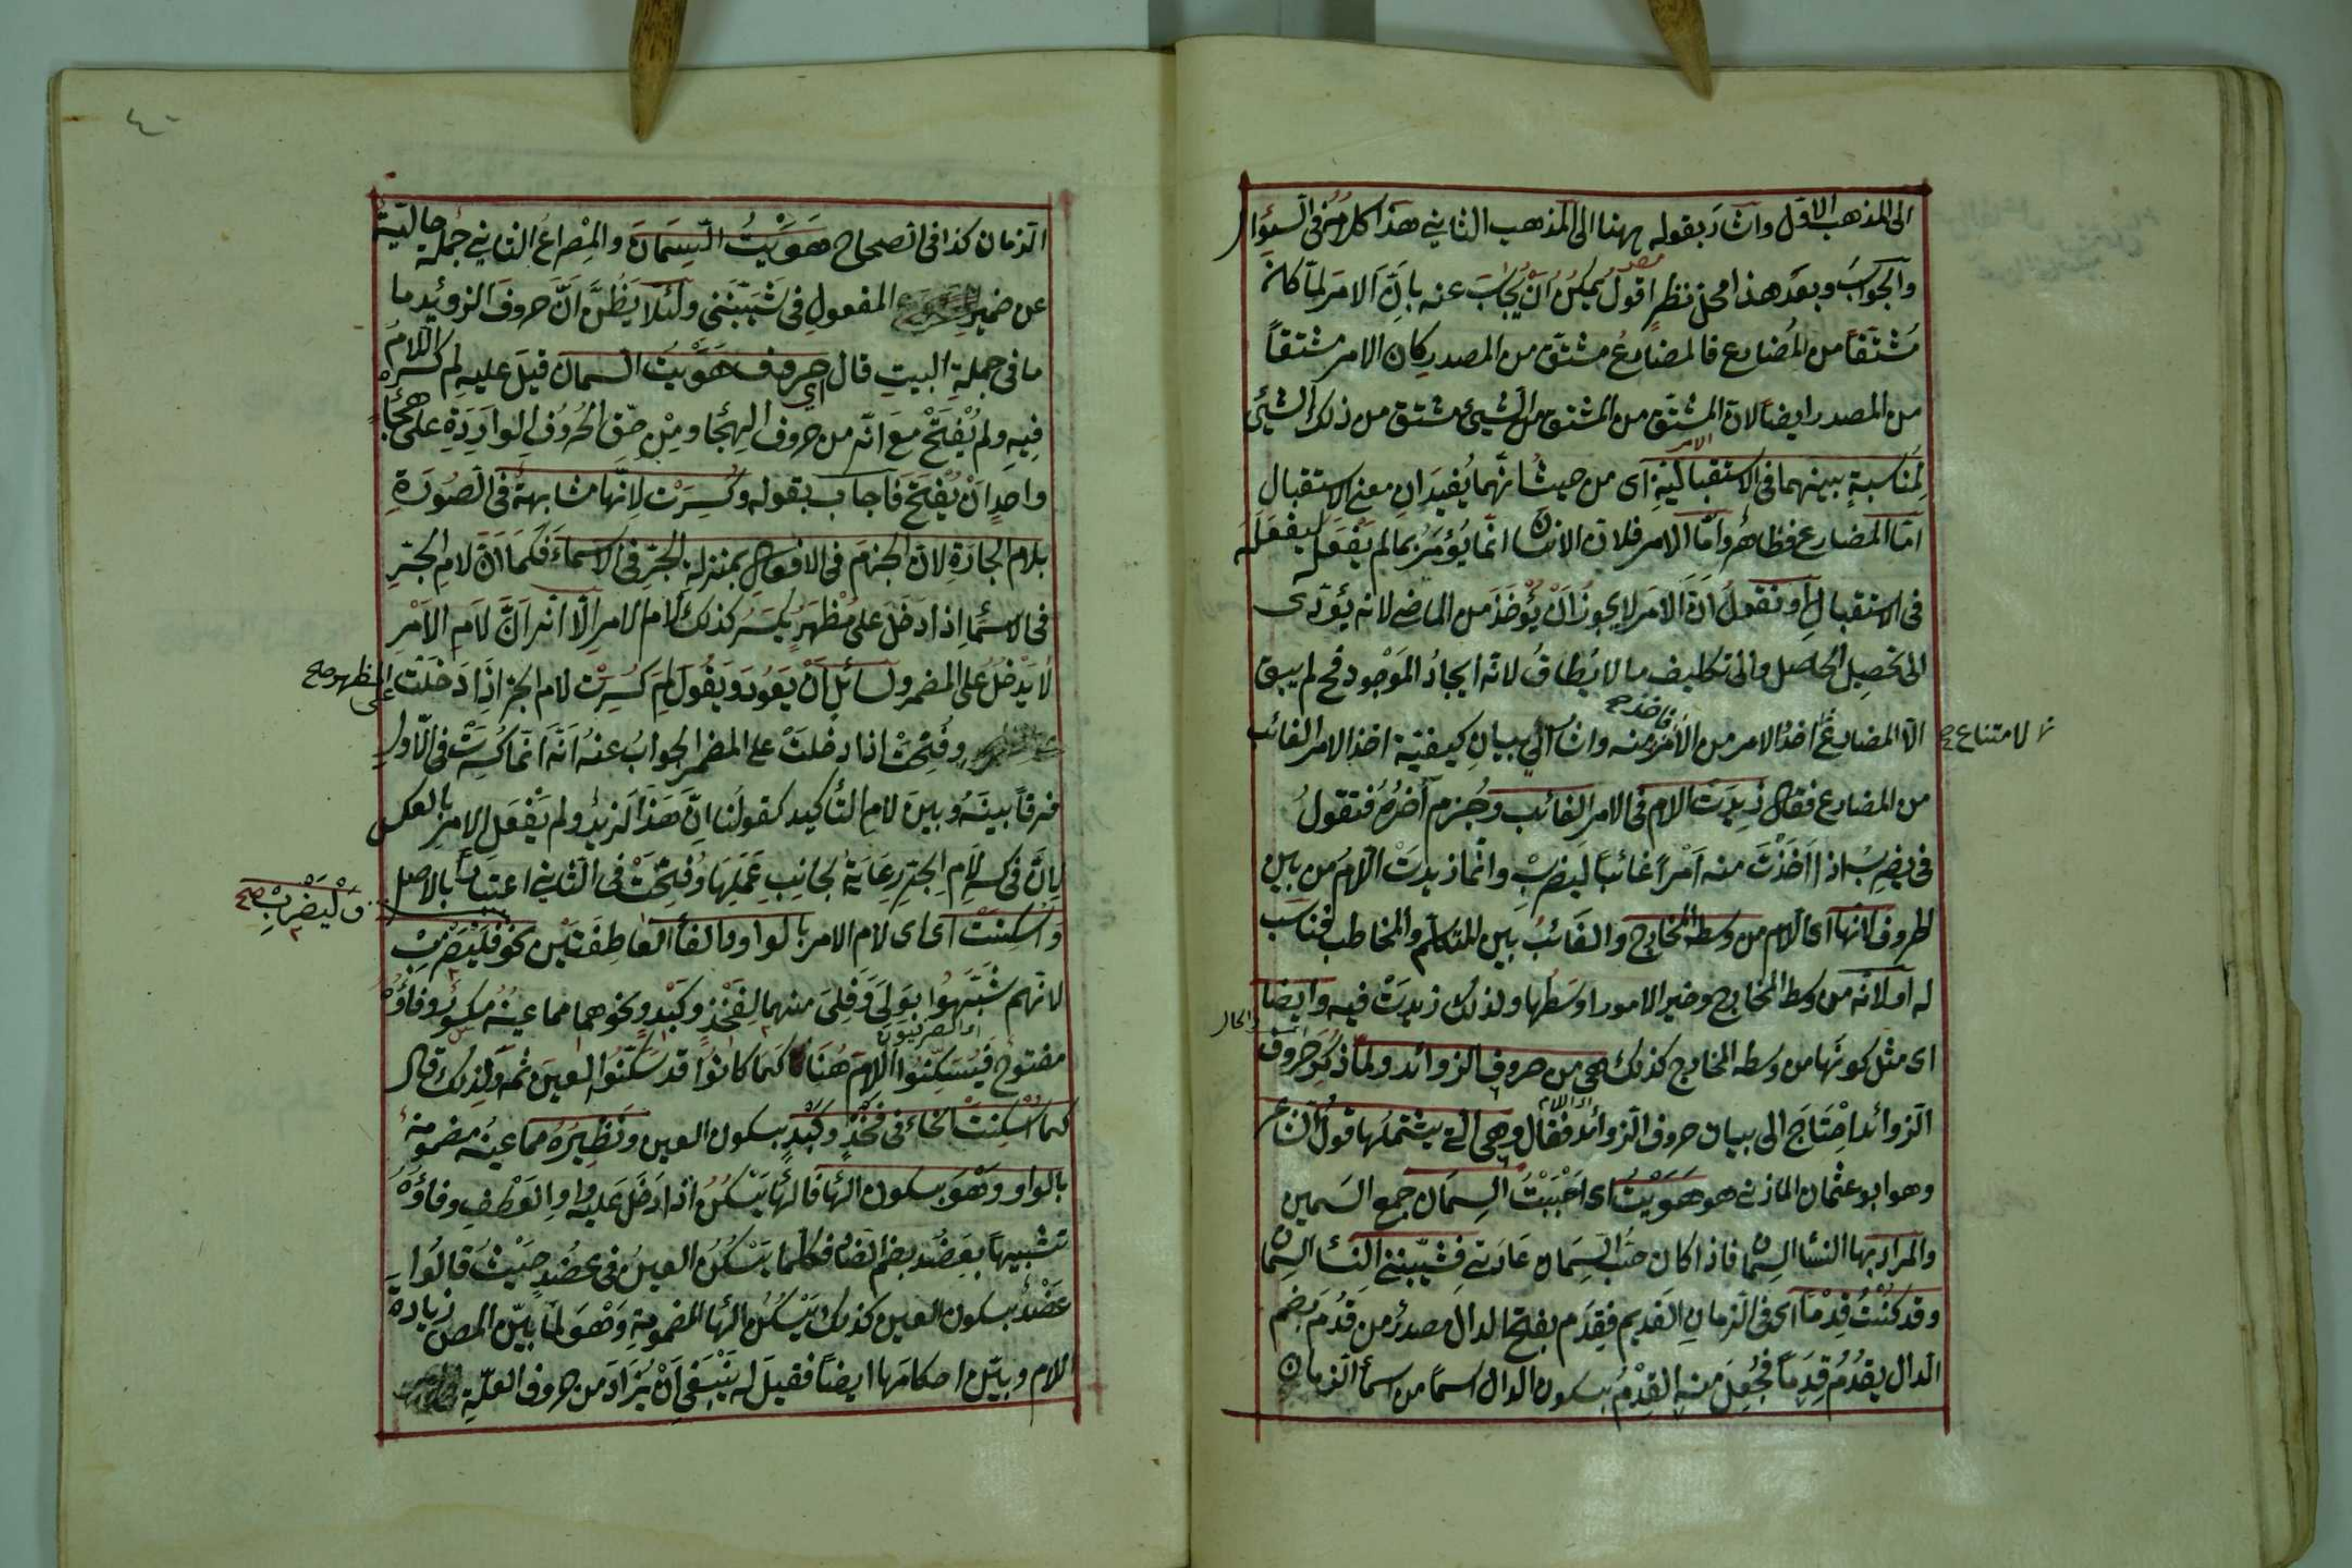 الى المذهب الاول واشار بقوله ههنا الى المذهب الثاني هذا كلامهم في السؤال
والجواب وبعد هذا محل نظر اقول يمكن ان يجاب عنه بان الامر لما كان
مشتقا من المضارع فالمضارع مشتق من المصدر كان الامر مشتقا
من المصدر ايضا لان المشتق من المشتق من الشيئ مشتق من ذلك الشيئ
لمناسبة بينهما في الاستقبالية اى من حيث انهما يفيدان معنى الاستقبال
اما المضارع فظاهر واما الامر فلان الانسان انما يؤمر بما لم يفعل ليفعله
في الاستقبال او نقول ان الامر لا يجوز ان يؤخذ من الماضي لانه يؤدى
الى تحصيل الحاصل والى تكليف ما لا يطاق لانه ايجاد الموجود فح لم يبق
الا المضارع لامتناع اخذ الامر من الامر فاخذ منه واشار الى بيان كيفية اخذ الامر الغائب
من المضارع فقال زيدت اللام في الامر الغائب وجزم آخره فتقول
في يضرب اذا اخذت منه امرا غائبا ليضرب وانما زيدت اللام من بين
الحروف لانها اى اللام من وسط المخارج والغائب بين المتكلم والمخاطب فناسب
له او لانه من وسط المخارج وخير الامور اوسطها ولذلك زيدت فيه وايضا
اى مثل كونها من وسط المخارج كذلك هى من حروف الزوائد ولما ذكر حروف
الزوائد احتاج الى بيان حروف الزوائد فقال وهى التي يشتملها قول الشاعر
وهو ابو عثمان المازني هو هويت اى احببت السمان جمع السمين
والمراد بها النساء السمان فاذا كان حب السمان عادتي فشيبنني النساء السمان
وقد كنت قدما اى في الزمان القديم فقدم بفتح الدال مصدر من قدم بضم
الدال يقدم قدما فجعل منه القدم بسكون الدال اسما من اسماء الزمان
٤٠
الزمان كذا في الصحاح هويت السمان والمصراع الثاني جملة حالية
عن ضمير المفعول في شيبنني ولئلا يظن ان حروف الزوئد ما
ما في جملة البيت قال اى حروف هويت السمان قيل عليه لم كسر اللام
فيه ولم يفتح مع انه من حروف الهجا ومن حق الحروف الواردة على هجاء
واحد ان يفتح فاجاب بقوله وكسرت لانها مشابهة في الصورة
بلام الجارة لان الجزم في الافعال بمنزلة الجر في الاسماء فكما ان لام الجر
في الاسماء اذا دخل على مظهر يكسر كذلك لام الامر الا انه ان لام الامر
لا يدخل على المضمر ولسائل ان يعود ويقول لم كسرت لام الجر اذا دخلت على المظهر صح
وفتحت اذا دخلت على المضمر الجواب عنه انه انما كسرت في الاول
فرقا بينه وبين لام التأكيد كقولنا ان هذا لزيد ولم يفعل الامر بالعكس
لان في كسر لام الجر رعاية لجانب عملها وفتحت في الثاني اعتبارا بالاصل
واسكنت اى اى لام الامر بالواو والفاء العاطفتين نحو فليضرب وليضرب صح
لانهم شبهوا بولي وفلي منهما لفخذ وكبد ونحوهما مما عينه مكسور وفاؤه
مفتوح فيسكنوا اى الصرفيون اللام هنا كما كانوا قد سكنوا العين ثمه ولذلك قال
كما اسكنت الخاء في فخذ وكبد بسكون العين ونظيره مما عينه مضمومة
بالواو وهو بسكون الهاء فالهاء يسكن اذا دخل عليه واو العطف وفاؤه
تشبيها بعضد بضم الضاد فكما يسكن العين في عضد حيث قالوا
عضد بسكون العين كذلك يسكن الهاء المضمومة وهو لما بين المص زيادة
اللام وبين احكامها ايضا فقيل له ينبغي ان يزاد من حروف العلة